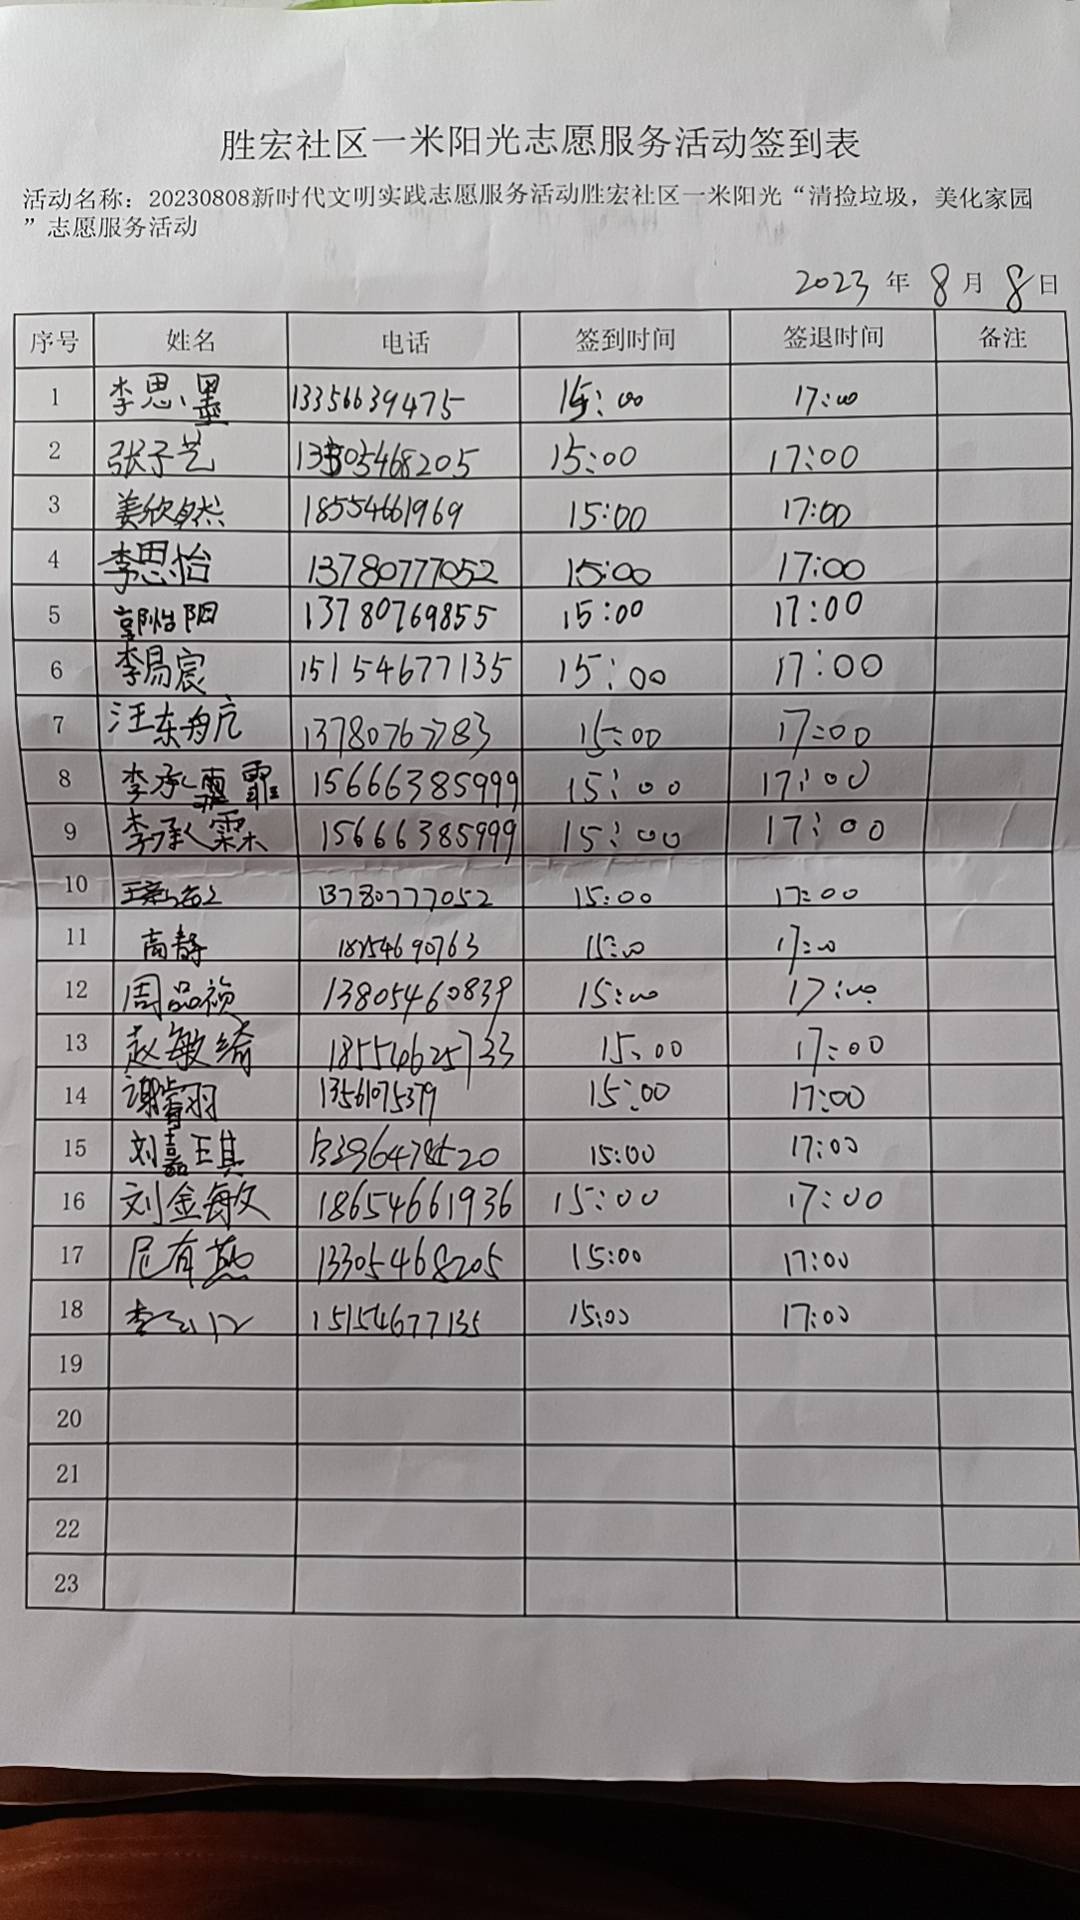 胜宏社区一米阳光志愿服务活动签到表
活动名称：20230808新时代文明实践志愿服务活动胜宏社区一米阳光“清捡垃圾，美化家园
”志愿服务活动
2023 年 8 月 8 日
序号 姓名 电话 签到时间 签退时间 备注
1 李思墨 13356639475 15:00 17:00
2 张子艺 13305468205 15:00 17:00
3 姜欣然 18554661969 15:00 17:00
4 李思怡 13780777052 15:00 17:00
5 郭怡阳 13780769855 15:00 17:00
6 李易宸 15154677135 15:00 17:00
7 汪东舟亢 13780767783 15:00 17:00
8 李承霏 15666385999 15:00 17:00
9 李承霖 15666385999 15:00 17:00
10 13780777052 15:00 17:00
11 高静 18754690763 15:00 17:00
12 周品祯 13805460839 15:00 17:00
13 赵敏绮 18554625733 15:00 17:00
14 谢 羽 13561075379 15:00 17:00
15 刘嘉琪 15:00 17:00
16 刘金敏 18654661936 15:00 17:00
17 尼有燕 13305468205 15:00 17:00
18 李 15154677135 15:00 17:00
19
20
21
22
23